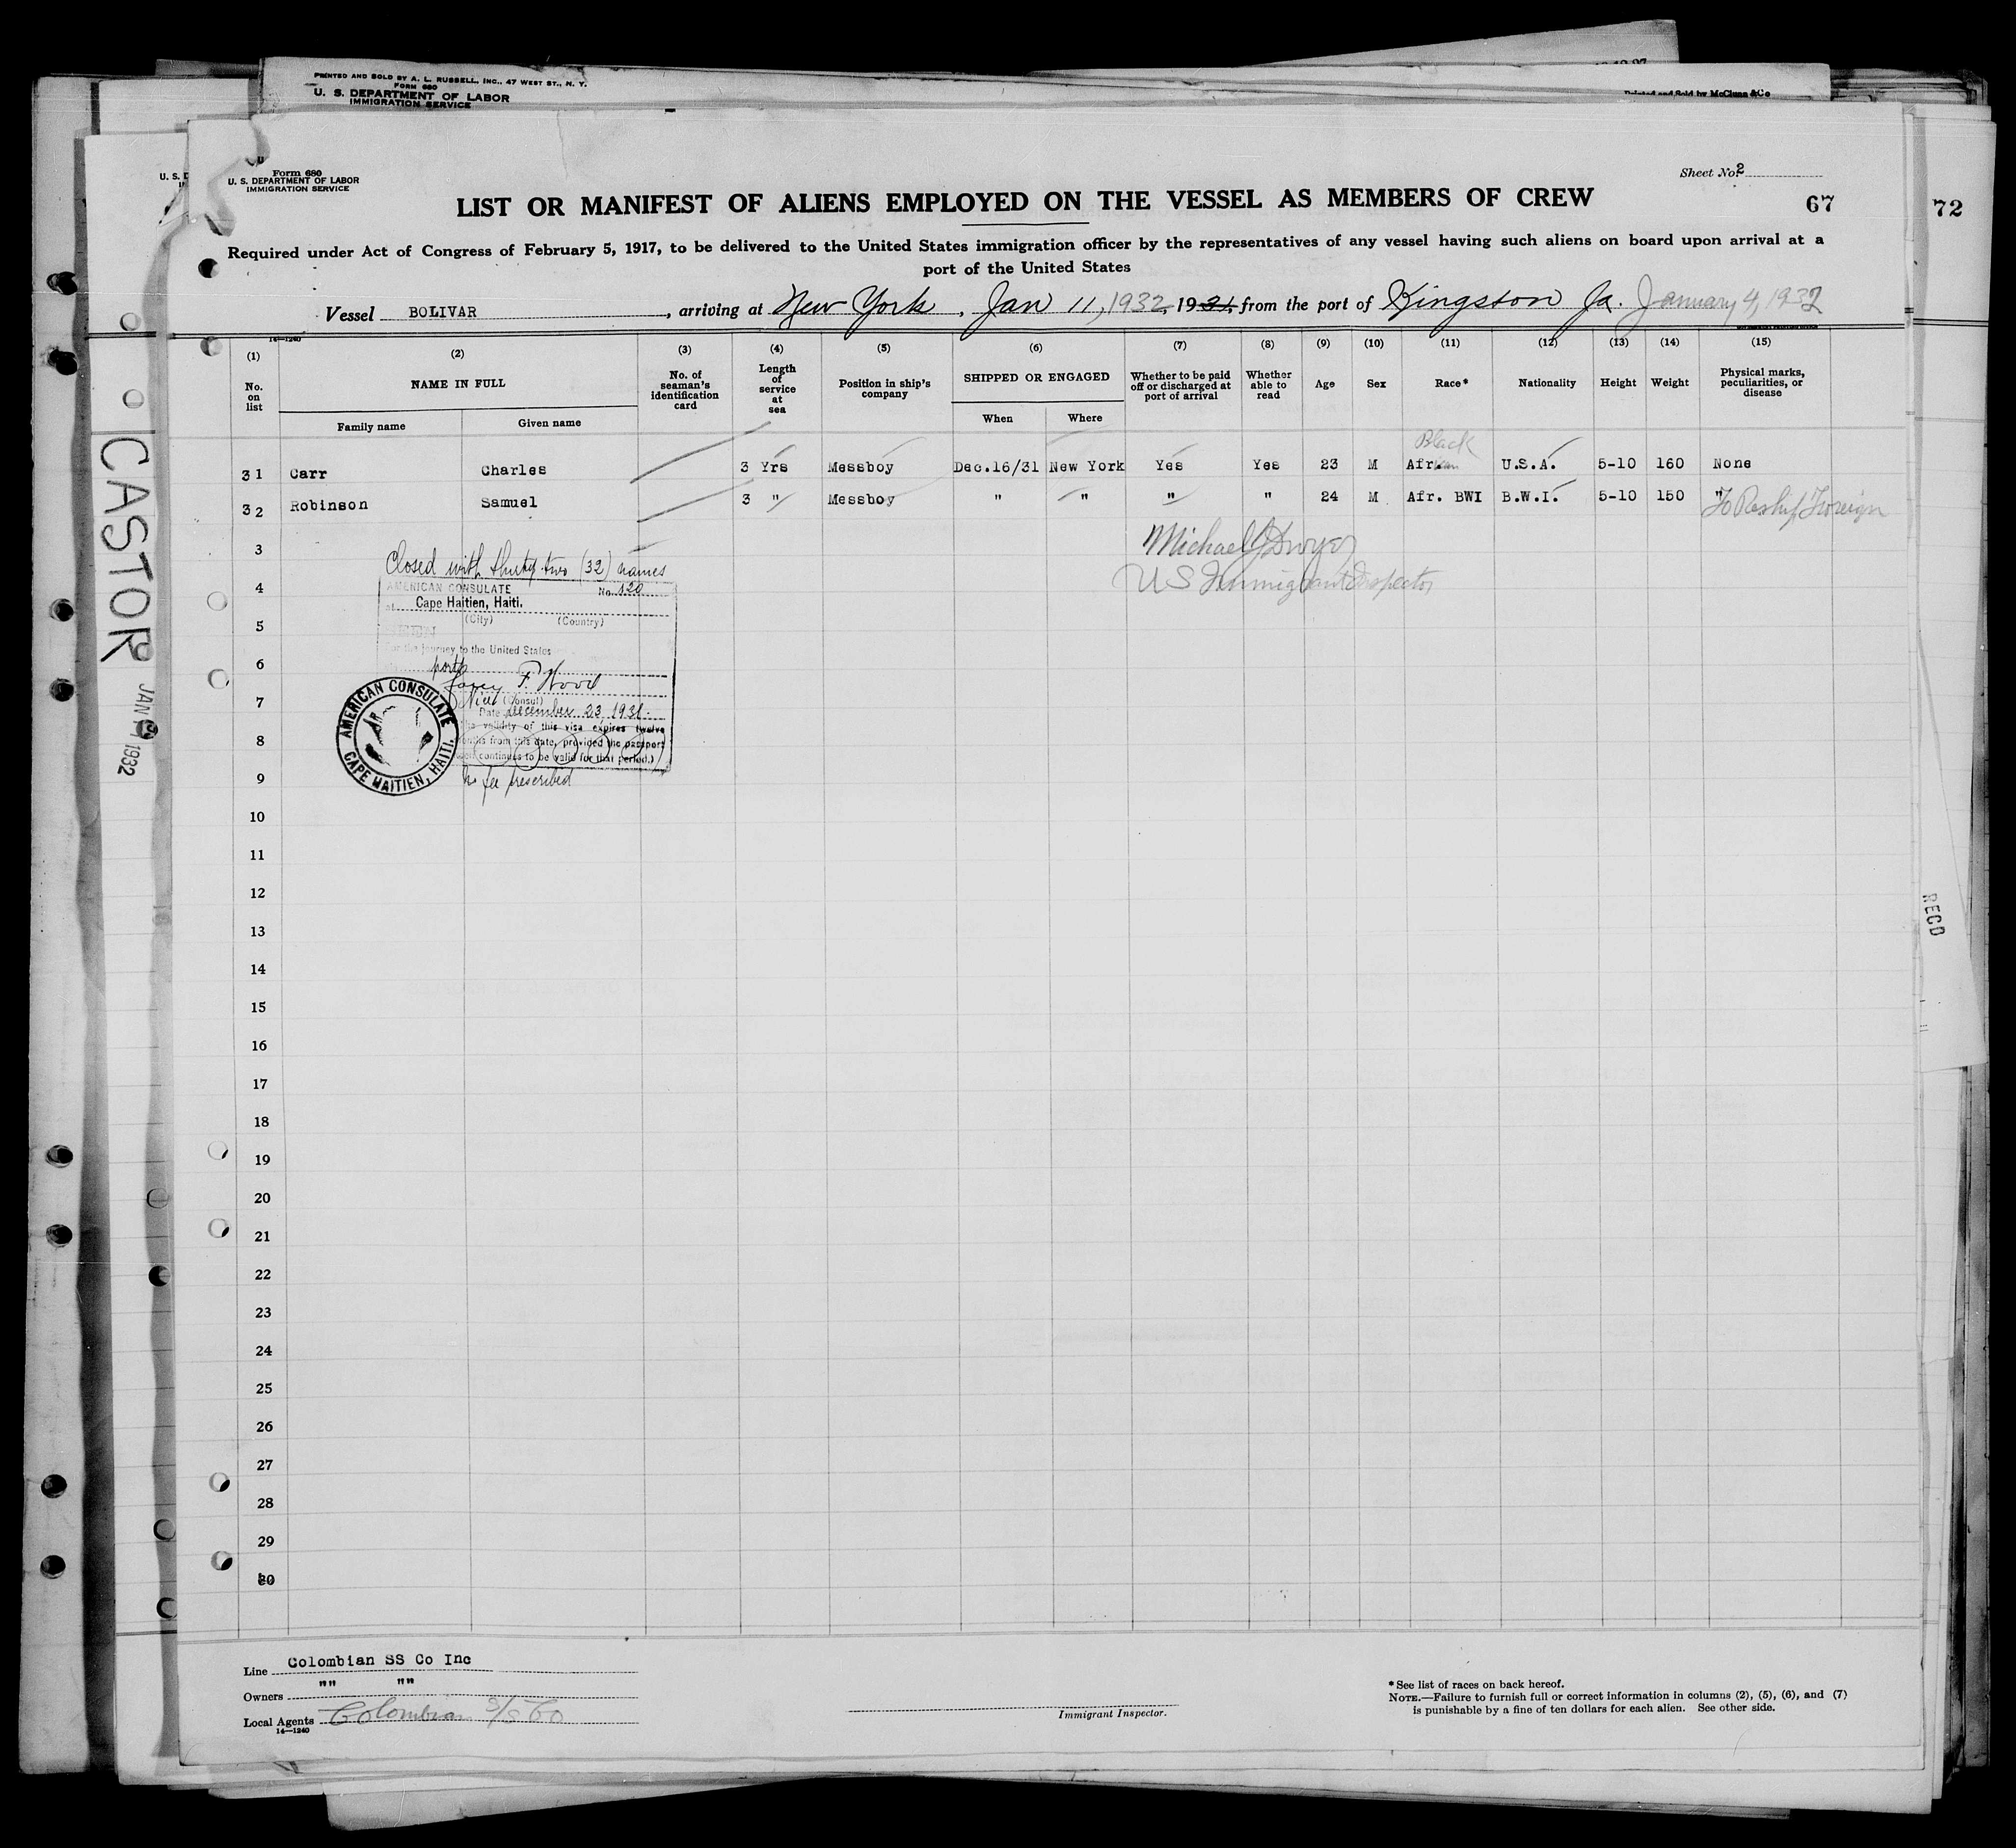 PRINTED AND SOLD BY A. L. RUSSELL, INC., 47 WEST ST., N. Y.
FORM 680
U. S. DEPARTMENT OF LABOR
IMMIGRATION SERVICE
Printed and Sold by McClunn & Co
Form 680
U. S. DEPARTMENT OF LABOR
IMMIGRATION SERVICE
Sheet No. 2
LIST OR MANIFEST OF ALIENS EMPLOYED ON THE VESSEL AS MEMBERS OF CREW
67
72
Required under Act of Congress of February 5, 1917, to be delivered to the United States immigration officer by the representatives of any vessel having such aliens on board upon arrival at a
port of the United States
Vessel BOLIVAR, arriving at New York, Jan 11, 1932, 1931, from the port of Kingston Ja. January 4, 1932
14—1240
(1) (2) (3) (4) (5) (6) (7) (8) (9) (10) (11) (12) (13) (14) (15)
No. on list
NAME IN FULL
Family name
Given name
No. of seaman's identification card
Length of service at sea
Position in ship's company
SHIPPED OR ENGAGED
When
Where
Whether to be paid off or discharged at port of arrival
Whether able to read
Age
Sex
Race*
Nationality
Height
Weight
Physical marks, peculiarities, or disease
Black
31 Carr Charles 3 Yrs Messboy Dec.16/31 New York Yes Yes 23 M African U.S.A. 5-10 160 None
32 Robinson Samuel 3 " Messboy " " " " 24 M Afr. BWI B.W.I. 5-10 150 "
To Reship Foreign
3
Michael J Dwyer
Closed with thirty-two (32) names
4
US Immigrant Inspector
AMERICAN CONSULATE No. 520
at Cape Haitien, Haiti.
5
(City) (Country)
For the journey to the United States
6
ports
F. Wood
7
Vice (Consul)
Date December 23, 1931.
The validity of this visa expires twelve
8
months from this date, provided the passport
continues to be valid for that period.)
9
No fee prescribed
AMERICAN CONSULATE
CAPE HAITIEN, HAITI.
10
11
12
13
14
15
16
17
18
19
20
21
22
23
24
25
26
27
28
29
30
CASTOR
JAN 1932
RECD
Line Colombian SS Co Inc
Owners "" ""
Local Agents Colombian S/S Co
14—1240
Immigrant Inspector.
* See list of races on back hereof.
NOTE.—Failure to furnish full or correct information in columns (2), (5), (6), and (7)
is punishable by a fine of ten dollars for each alien. See other side.